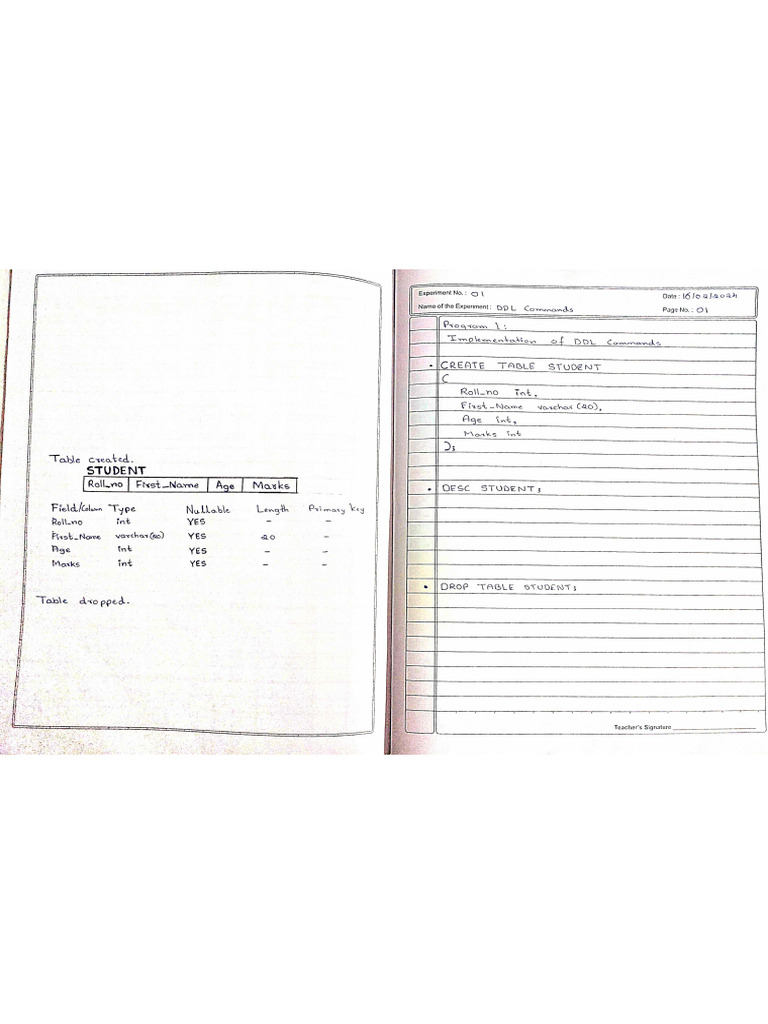 Table created.
STUDENT
Roll_no First_Name Age Marks
Field/Column Type Nullable Length Primary Key
Roll_no int YES - -
First_Name varchar(20) YES 20 -
Age int YES - -
Marks int YES - -
Table dropped.
Experiment No. : 01
Date : 16/02/2024
Name of the Experiment : DDL Commands
Page No. : 01
Program 1 :
Implementation of DDL Commands
• CREATE TABLE STUDENT
(
Roll_no int,
First_Name varchar(20),
Age int,
Marks int
);
• DESC STUDENT;
• DROP TABLE STUDENT;
Teacher's Signature